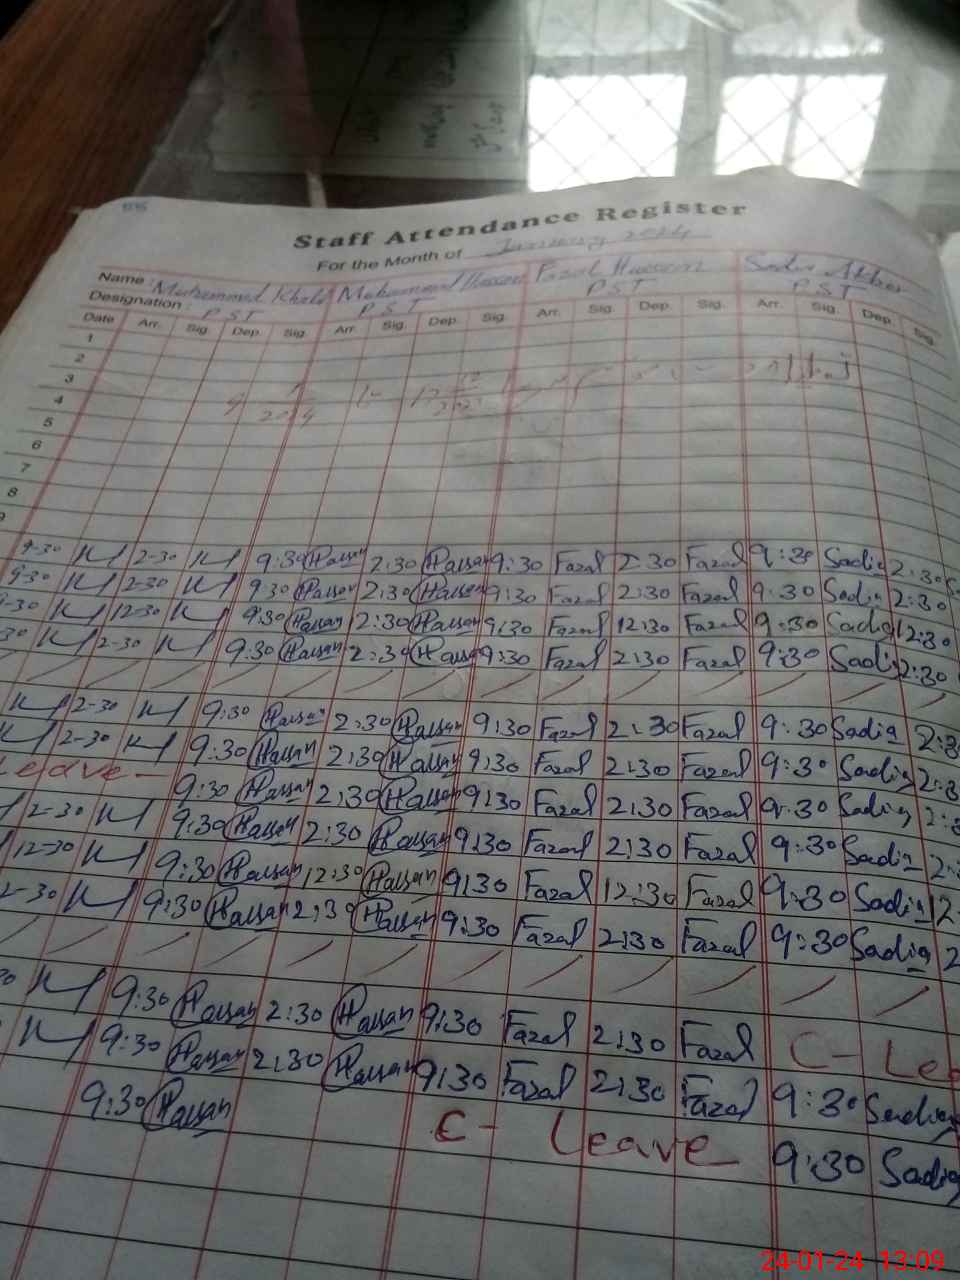 Staff Attendance Register
For the Month of January 2024
Name: Muhammad Khalid Muhammad Hassan Fazal Hussain Sadia Akber
Designation: PST PST PST PST
Date Arr. Sig. Dep. Sig. Arr. Sig. Dep. Sig. Arr. Sig. Dep. Sig. Arr. Sig. Dep. Sig.
1
2
3
4
5
6
7
8
9
9-30 2-30 9:30 Hassan 2:30 Hassan 9:30 Fazal 2:30 Fazal 9:30 Sadia 2:30
9-30 2-30 9:30 Hassan 2:30 Hassan 9:30 Fazal 2:30 Fazal 9:30 Sadia 2:30
9-30 12-30 9:30 Hassan 12:30 Hassan 9:30 Fazal 12:30 Fazal 9:30 Sadia 12:30
30 2-30 9:30 Hassan 2:30 Hassan 9:30 Fazal 2:30 Fazal 9:30 Sadia 2:30
2-30 9:30 Hassan 2:30 Hassan 9:30 Fazal 2:30 Fazal 9:30 Sadia 2:3
2-30 9:30 Hassan 2:30 Hassan 9:30 Fazal 2:30 Fazal 9:30 Sadia 2:3
Leave - 9:30 Hassan 2:30 Hassan 9:30 Fazal 2:30 Fazal 9:30 Sadia 2:
2-30 9:30 Hassan 2:30 Hassan 9:30 Fazal 2:30 Fazal 9:30 Sadia 2:
12-30 9:30 Hassan 12:30 Hassan 9:30 Fazal 12:30 Fazal 9:30 Sadia 12
2-30 9:30 Hassan 2:30 Hassan 9:30 Fazal 2:30 Fazal 9:30 Sadia 2
30 9:30 Hassan 2:30 Hassan 9:30 Fazal 2:30 Fazal C- Lea
9:30 Hassan 2:30 Hassan 9:30 Fazal 2:30 Fazal 9:30 Sadia
9:30 Hassan C- Leave 9:30 Sadia
24-01-24 13:09